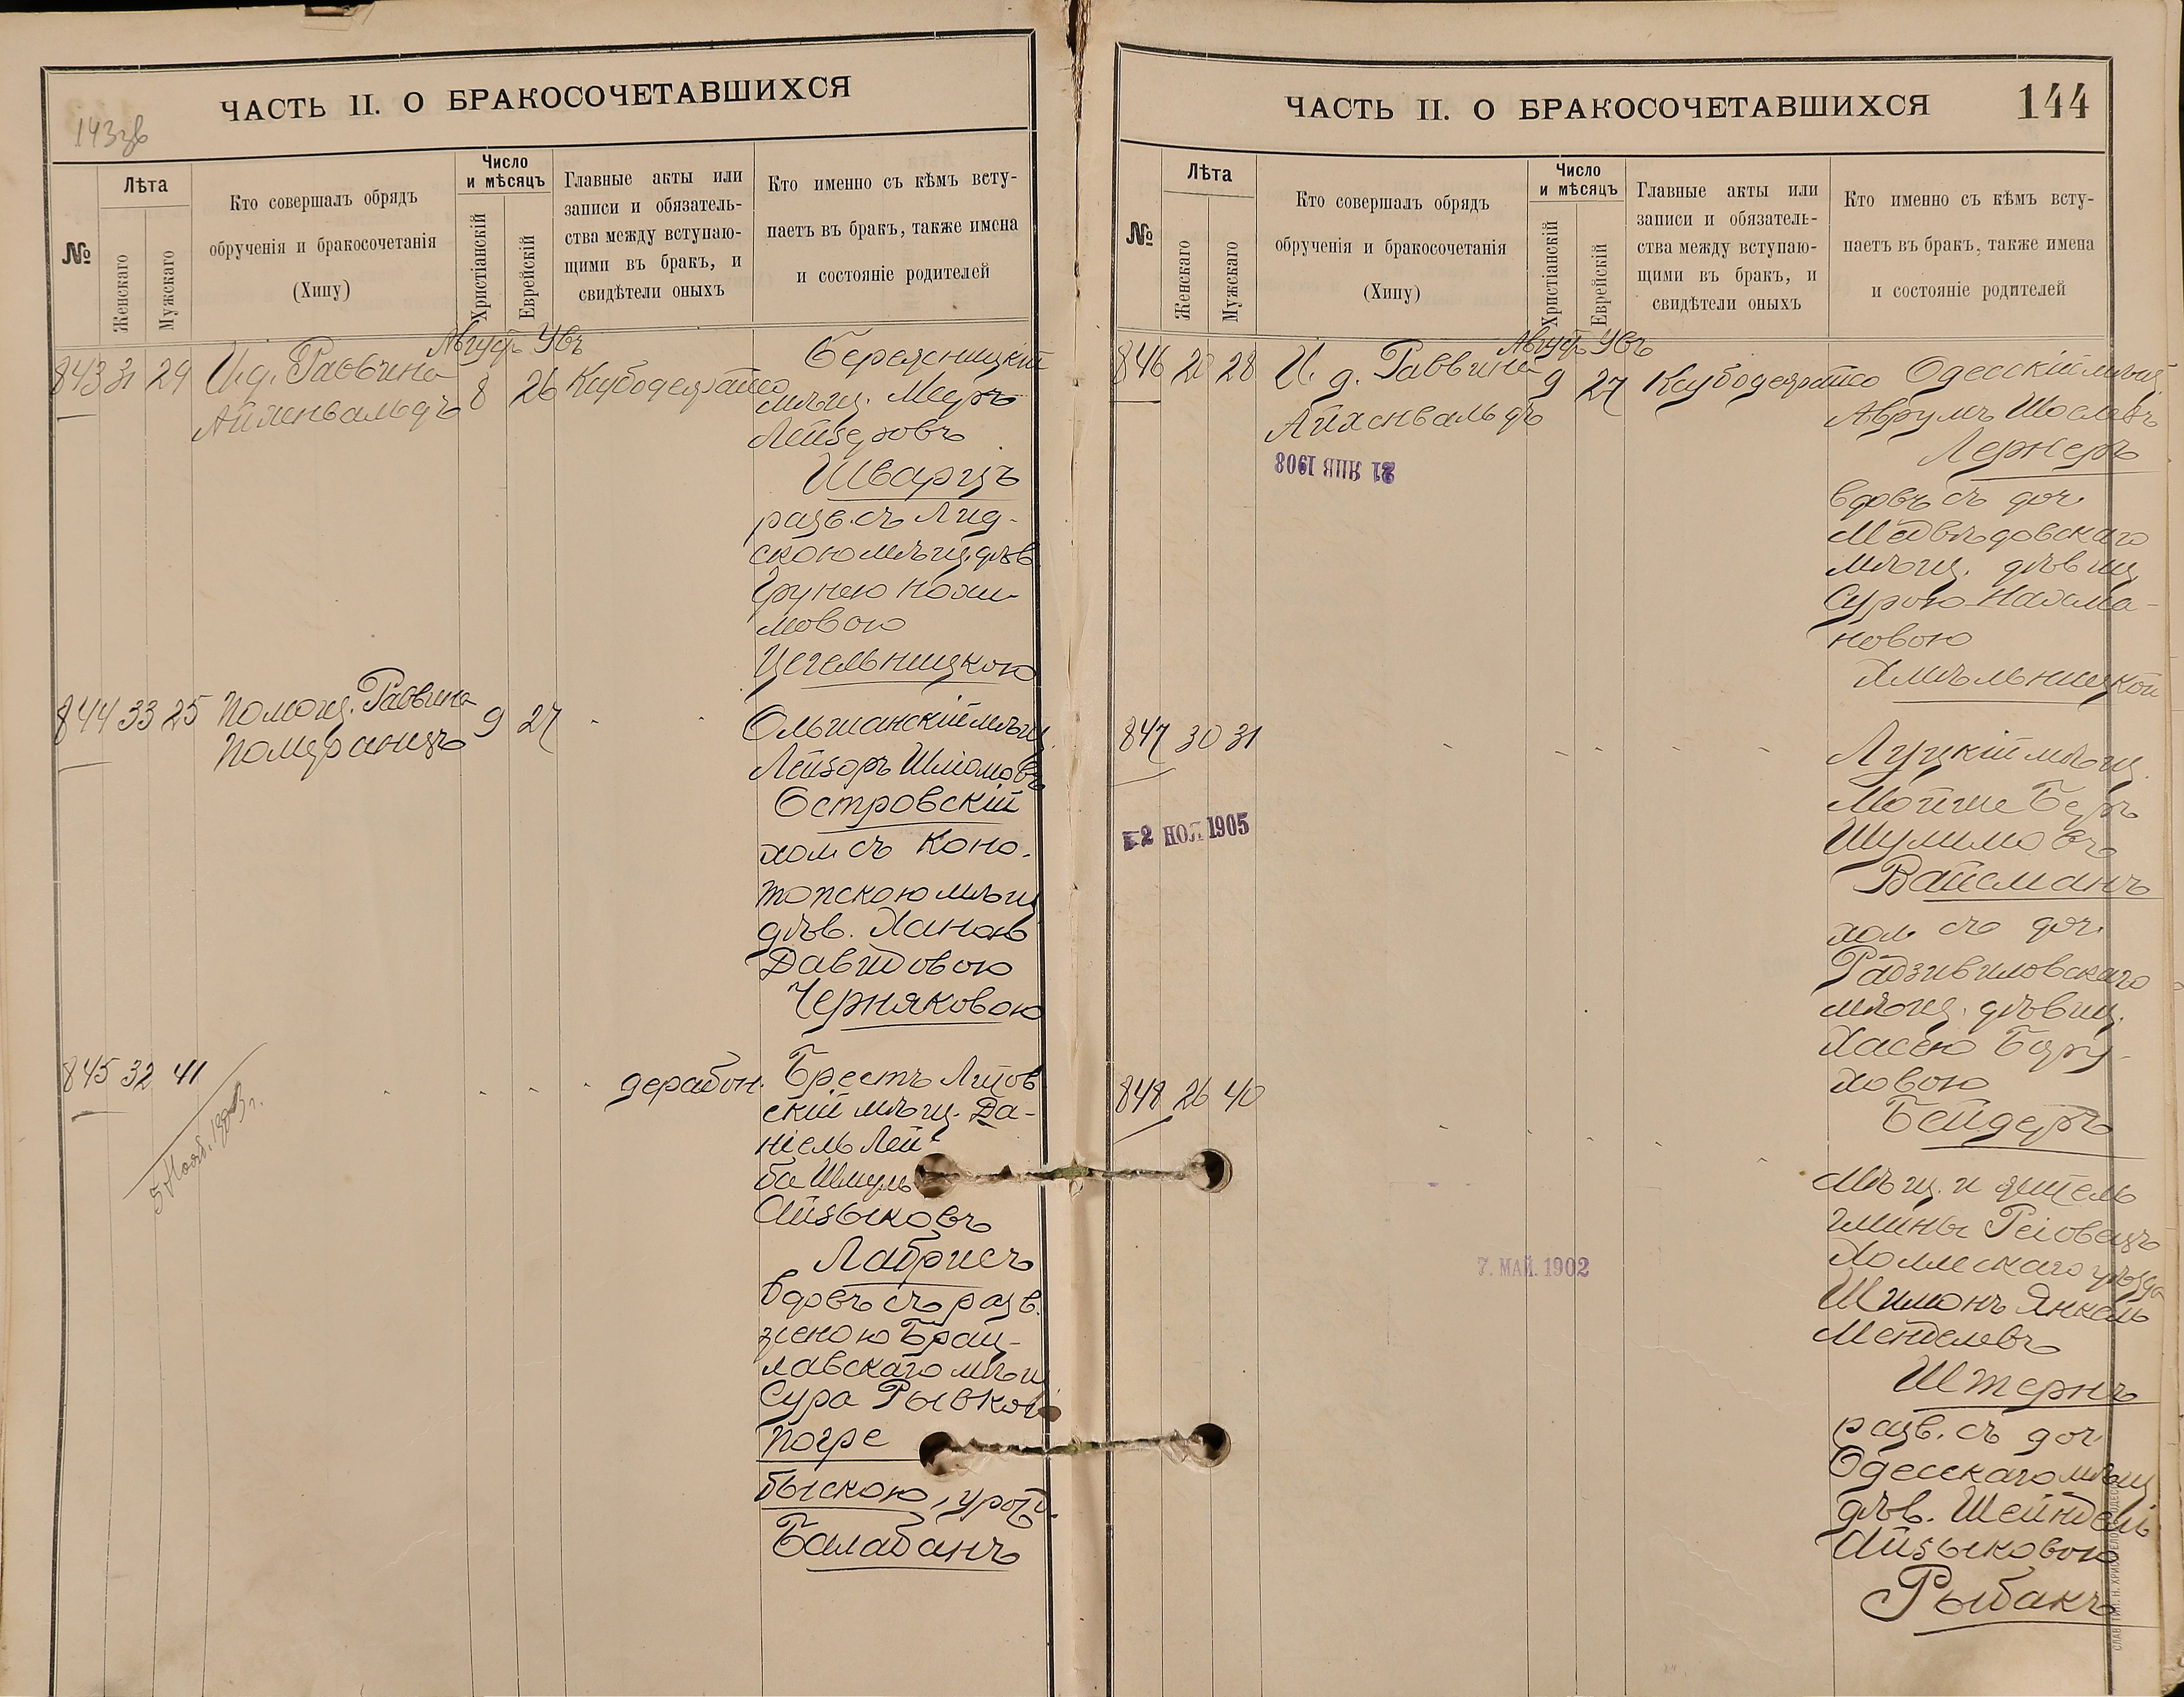 ЧАСТЬ II. О БРАКОСОЧЕТАВШИХСЯ
143зв
№
Лѣта
Женскаго
Мужскаго
Кто совершалъ обрядъ
обрученія и бракосочетанія
(Хипу)
Число
и мѣсяцъ
Христіанскій
Еврейскій
Главные акты или
записи и обязатель-
ства между вступаю-
щими въ бракъ, и
свидѣтели оныхъ
Кто именно съ кѣмъ всту-
паетъ въ бракъ, также имена
и состояніе родителей
843 31 29 И.д. Раввина
Айхенвальдъ
Август Увъ
8 26
мѣщ. Мееръ
Лейзеровъ
Шварцъ
разв. съ Лид-
скою мѣщ. дѣв
Грунею Нохи-
мовою
Цегельницкою
844 33 25 Помощ. Раввина
Померанцъ
9 27
Ольшанскій мѣщ.
Лейзоръ Шліомовъ
Островскій
хол. съ Коно-
топскою мѣщ
дѣв. Ханою
Давидовою
Черняковою
845 32 41
5 Нояб. 1903 г.
дерабон.
Брестъ Литов
скій мѣщ. Да-
ніель Лей-
ба Шмуль
Айзыковъ
Лабрисъ
вдовъ съ разв.
женою Брац-
лавскаго мѣщ
Сура Рывкою
Погре
быскою, урожд.
Балабанъ
ЧАСТЬ II. О БРАКОСОЧЕТАВШИХСЯ
144
№
Лѣта
Женскаго
Мужскаго
Кто совершалъ обрядъ
обрученія и бракосочетанія
(Хипу)
Число
и мѣсяцъ
Христіанскій
Еврейскій
Главные акты или
записи и обязатель-
ства между вступаю-
щими въ бракъ, и
свидѣтели оныхъ
Кто именно съ кѣмъ всту-
паетъ въ бракъ, также имена
и состояніе родителей
846 20 28 И. д. Раввина
Айхенвальдъ
21 ЯНВ 1908
Август Увъ
9 27
Одесскій мѣщ
Аврумъ
Лернеръ
вдовъ съ доч.
Медвѣдовскаго
мѣщ. дѣвиц
Сурою Нахма-
новою
Хмѣльницкой
847 30 31
2 НОЯ 1905
Луцкій мѣщ.
Мойше Беръ
Шулимовъ
Вайсманъ
хол. съ доч.
Радзивиловскаго
мѣщ. дѣвиц.
Хасею Бору-
ховою
Бейдеръ
848 26 40
7. МАЙ. 1902
Мѣщ. и житель
гмины Реіовецъ
Холмскаго уѣзда
Шимонъ Янкель
Менделевъ
Штернъ
разв. съ доч.
Одесскаго мѣщ
дѣв. Шейндель
Айзыковою
Рыбакъ